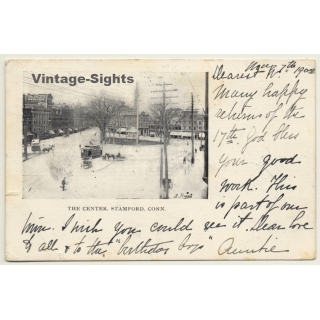 Vintage-Sights
Nov. 7th
Dearest
Many happy
returns of the
17th God bless
your good
work. This
is part of our
THE CENTER, STAMFORD, CONN.
town. I wish you could see it. Dear love
to all & to the "birthday boy"
Auntie